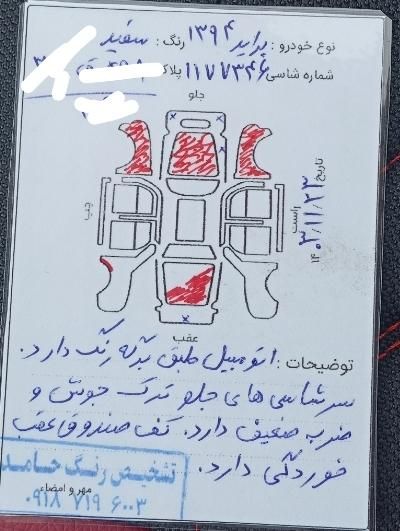 نوع خودرو: پراید ۱۳۹۴ رنگ: سفید
شماره شاسی ۱۱۷۷۳۴۶ پلاک
جلو
چپ
راست
تاریخ ۱۴۰۳/۱۱/۲۳
عقب
توضیحات: اتومبیل طبق برگه رنگ دارد.
سرشاسی های جلو ترک جوش و
ضربه ضعیف دارد. کف صندوق عقب
خوردگی دارد.
تشخیص رنگ حامد
مهر و امضاء
۰۹۱۸ ۷۱۹ ۶۰۰۳